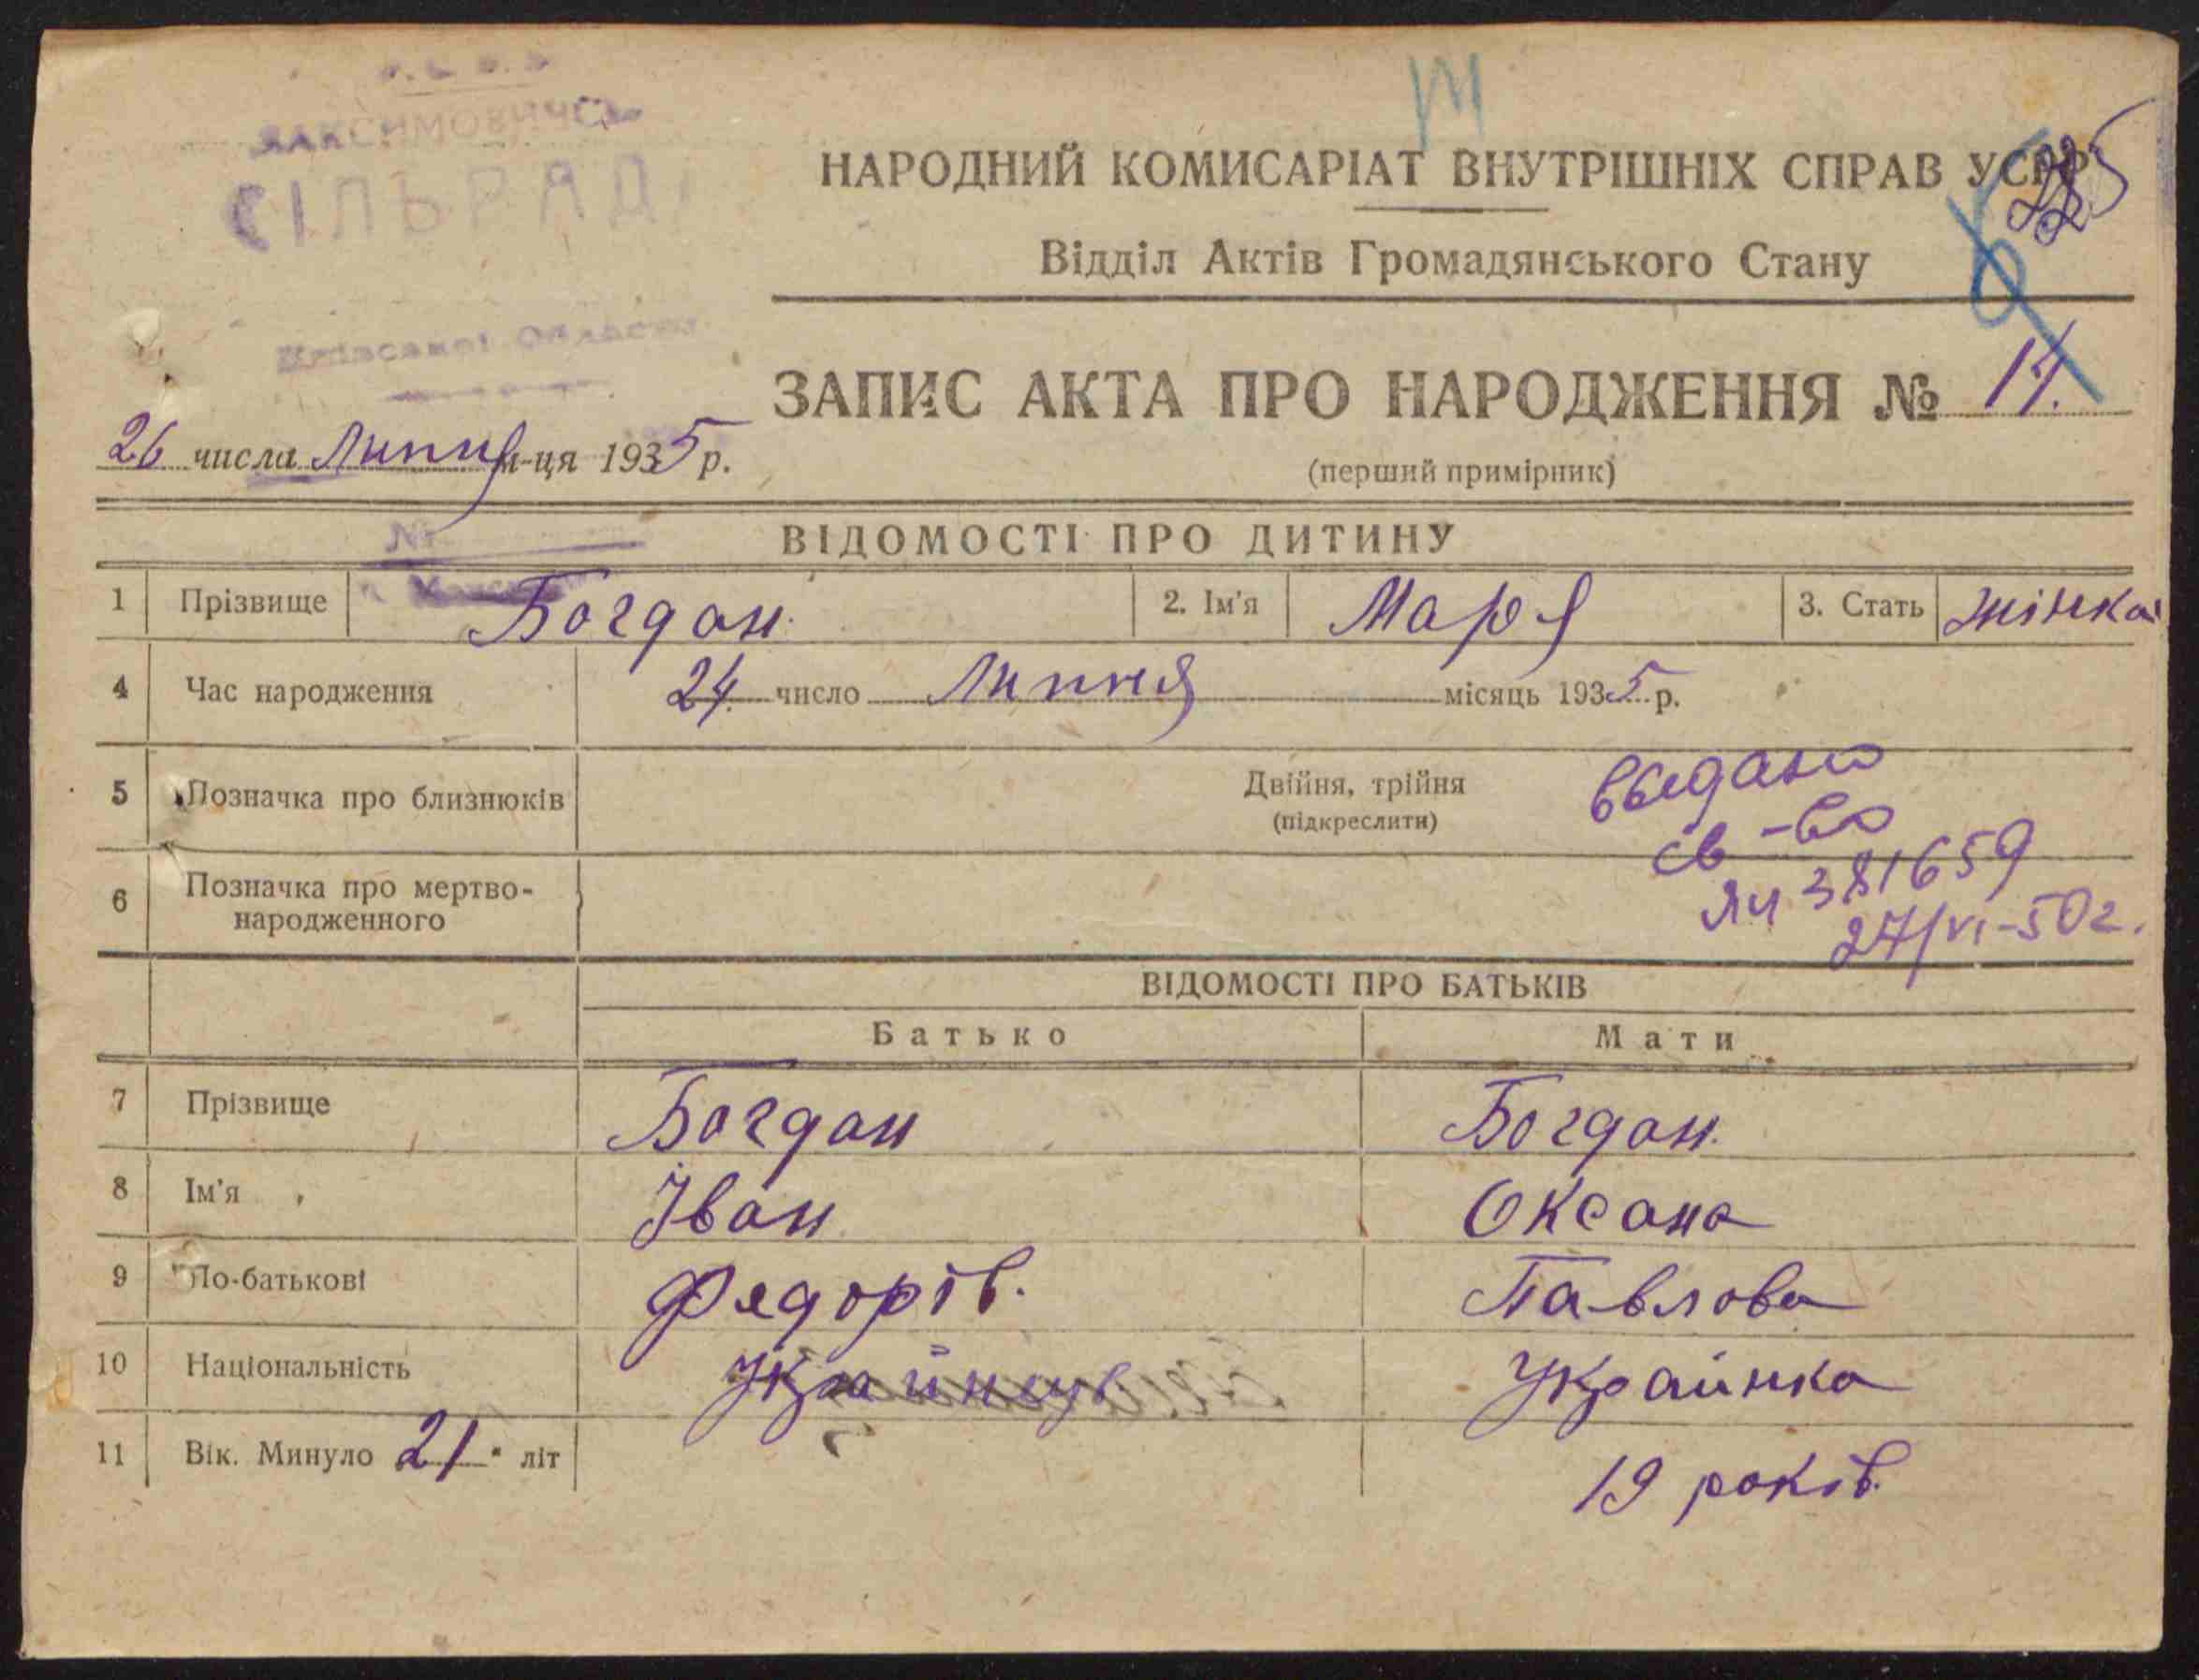 СІЛЬРАДА
Київської Області
НАРОДНИЙ КОМИСАРІАТ ВНУТРІШНІХ СПРАВ УСРР
Відділ Актів Громадянського Стану
ЗАПИС АКТА ПРО НАРОДЖЕННЯ № 14.
26 числа Липня м-ця 1935 р.
(перший примірник)
ВІДОМОСТІ ПРО ДИТИНУ
1 Прізвище Богдан 2. Ім'я Маря 3. Стать жінка
4 Час народження 24 число Липня місяць 1935 р.
5 Позначка про близнюків Двійня, трійня
(підкреслити)
выдано
св-во
ЯЧ 381659
27/VI-50г.
6 Позначка про мертво-
народженного
ВІДОМОСТІ ПРО БАТЬКІВ
Батько Мати
7 Прізвище Богдан Богдан
8 Ім'я Іван Оксана
9 По-батькові Федорів. Павлова
10 Національність Українка
11 Вік. Минуло 21 літ 19 років.